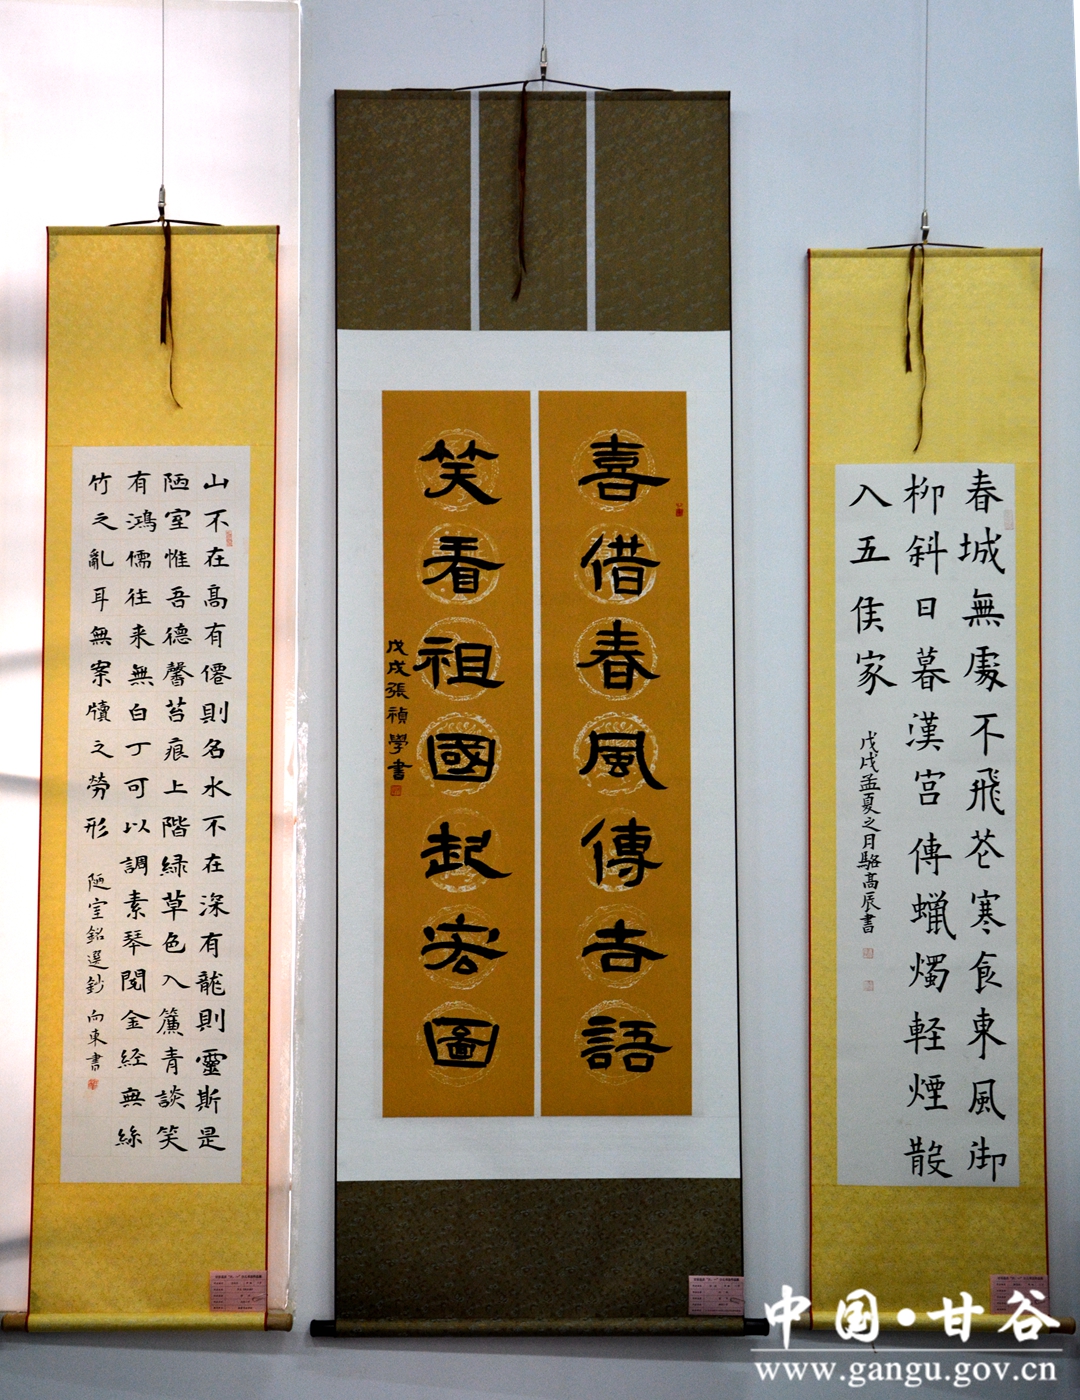 山不在高有僊則名水不在深有龍則靈斯是
陋室惟吾德馨苔痕上階緑草色入簾青談笑
有鴻儒往来無白丁可以調素琴閱金経無絲
竹之亂耳無案牘之勞形
陋室銘選鈔 向東書
喜借春風傳吉語
笑看祖國起宏圖
戊戌張禎學書
春城無處不飛花寒食東風御
柳斜日暮漢宫傳蠟燭軽煙散
入五侯家
戊戌孟夏之日駱高辰書
中国·甘谷
www.gangu.gov.cn